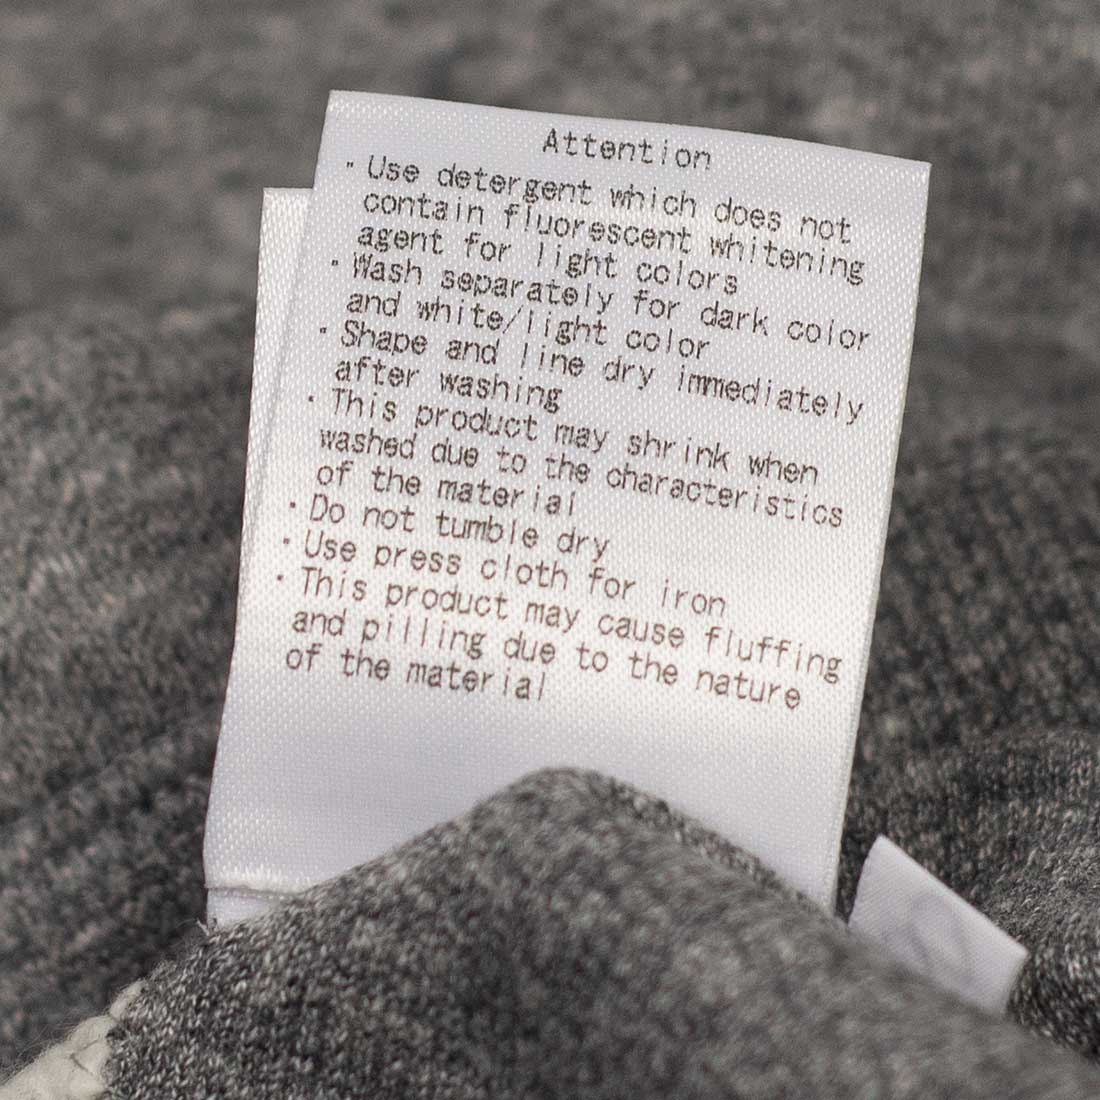 Attention
・Use detergent which does not
contain fluorescent whitening
agent for light colors
・Wash separately for dark color
and white/light color
・Shape and line dry immediately
after washing
・This product may shrink when
washed due to the characteristics
of the material
・Do not tumble dry
・Use press cloth for iron
・This product may cause fluffing
and pilling due to the nature
of the material